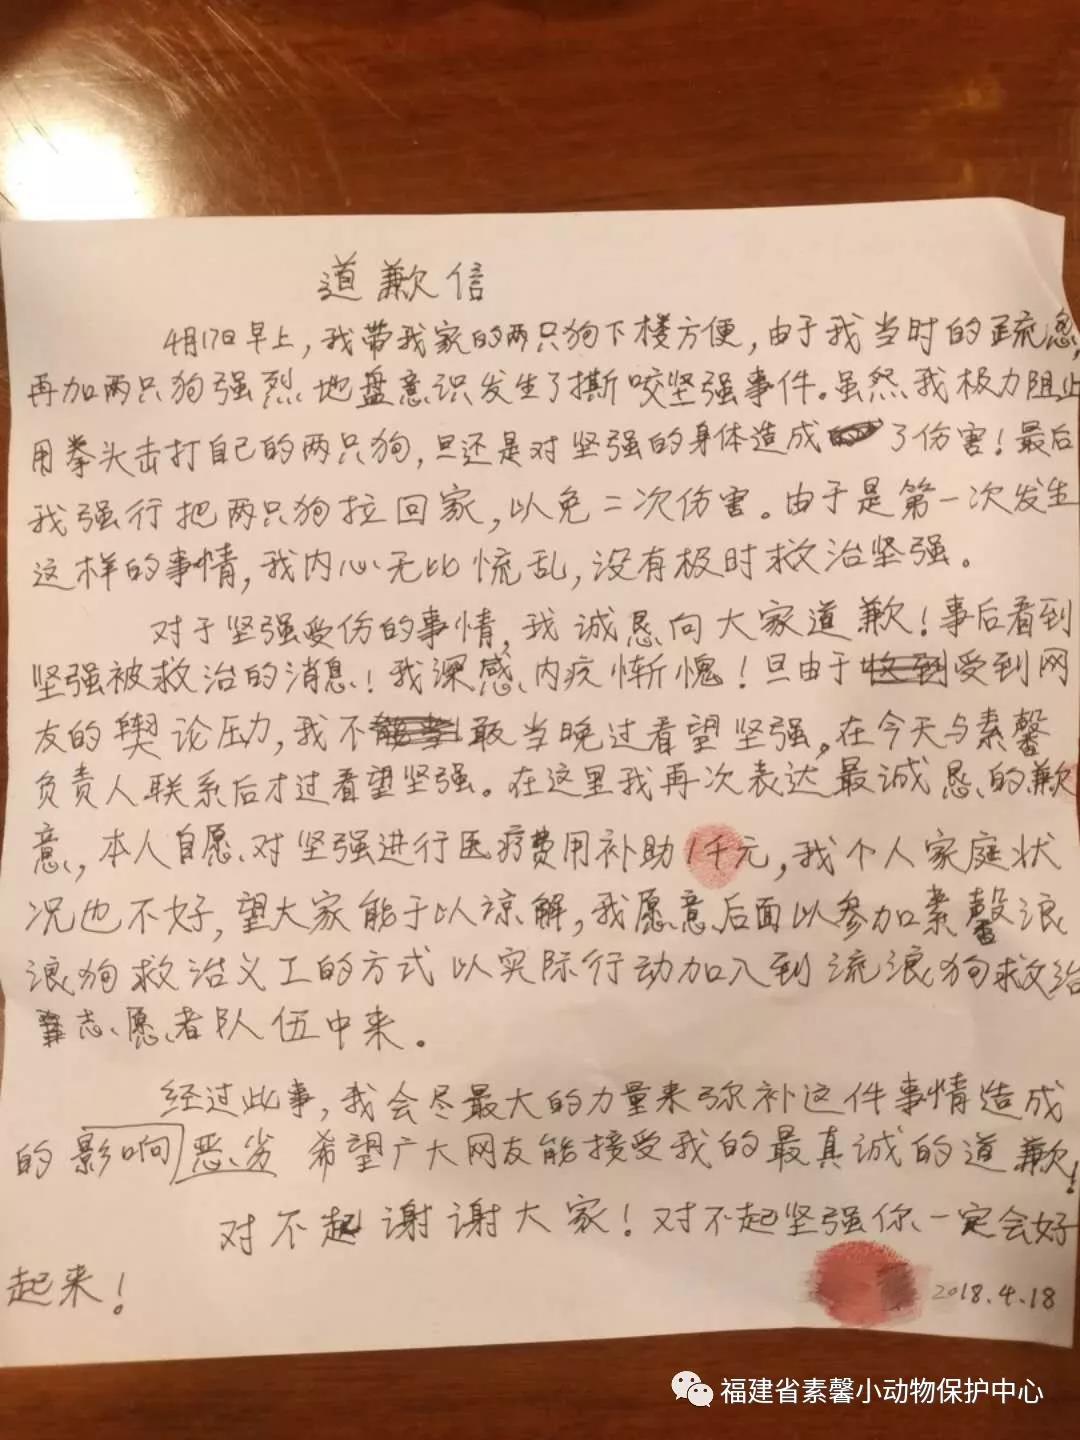 道歉信
4月17日早上，我带我家的两只狗下楼方便，由于我当时的疏忽，
再加两只狗强烈地盘意识发生了撕咬坚强事件。虽然我极力阻止
用拳头击打自己的两只狗，但还是对坚强的身体造成了伤害！最后
我强行把两只狗拉回家，以免二次伤害。由于是第一次发生
这样的事情，我内心无比慌乱，没有极时救治坚强。
对于坚强受伤的事情，我诚恳向大家道歉！事后看到
坚强被救治的消息！我深感内疚惭愧！但由于受到网
友的舆论压力，我不敢当晚过看望坚强。在今天与素馨
负责人联系后才过看望坚强。在这里我再次表达最诚恳的歉
意，本人自愿对坚强进行医疗费用补助1千元，我个人家庭状
况也不好，望大家能于以谅解，我愿意后面以参加素馨浪
浪狗救治义工的方式以实际行动加入到流浪狗救治
志愿者队伍中来。
经过此事，我会尽最大的力量来弥补这件事情造成
的影响恶劣 希望广大网友能接受我的最真诚的道歉！
对不起谢谢大家！对不起坚强你一定会好
起来！
2018.4.18
福建省素馨小动物保护中心